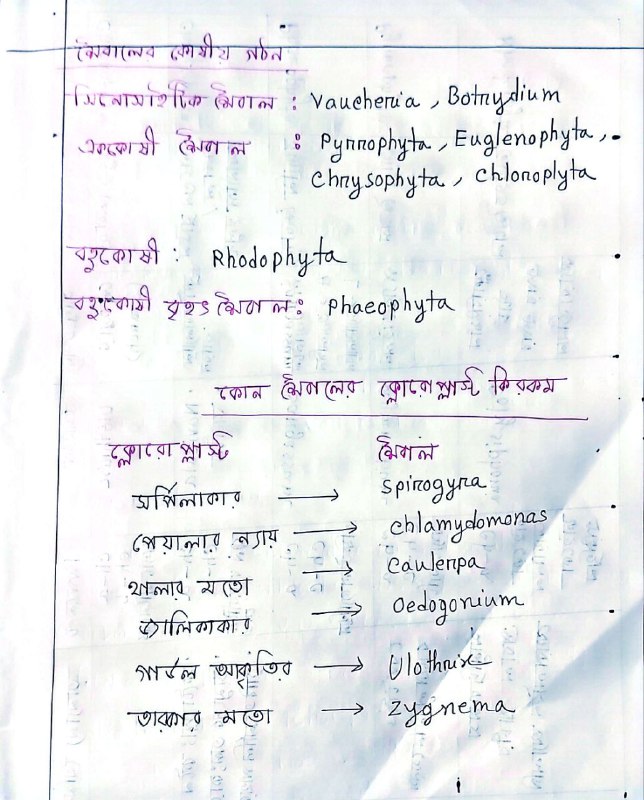 শৈবালের কোষীয় গঠন
সিনোসাইটিক শৈবাল : Vaucheria, Botrydium
এককোষী শৈবাল : Pyrrophyta, Euglenophyta,
Chrysophyta, Chloroplyta
বহুকোষী : Rhodophyta
বহুকোষী বৃহৎ শৈবাল : Phaeophyta
কোন শৈবালের ক্লোরোপ্লাস্ট কিরকম
ক্লোরোপ্লাস্ট শৈবাল
সর্পিলাকার → Spirogyra
পেয়ালার ন্যায় → Chlamydomonas
থালার মতো → Caulerpa
জালিকাকার → Oedogonium
গার্ডল আকৃতির → Ulothrix
তারকার মতো → Zygnema